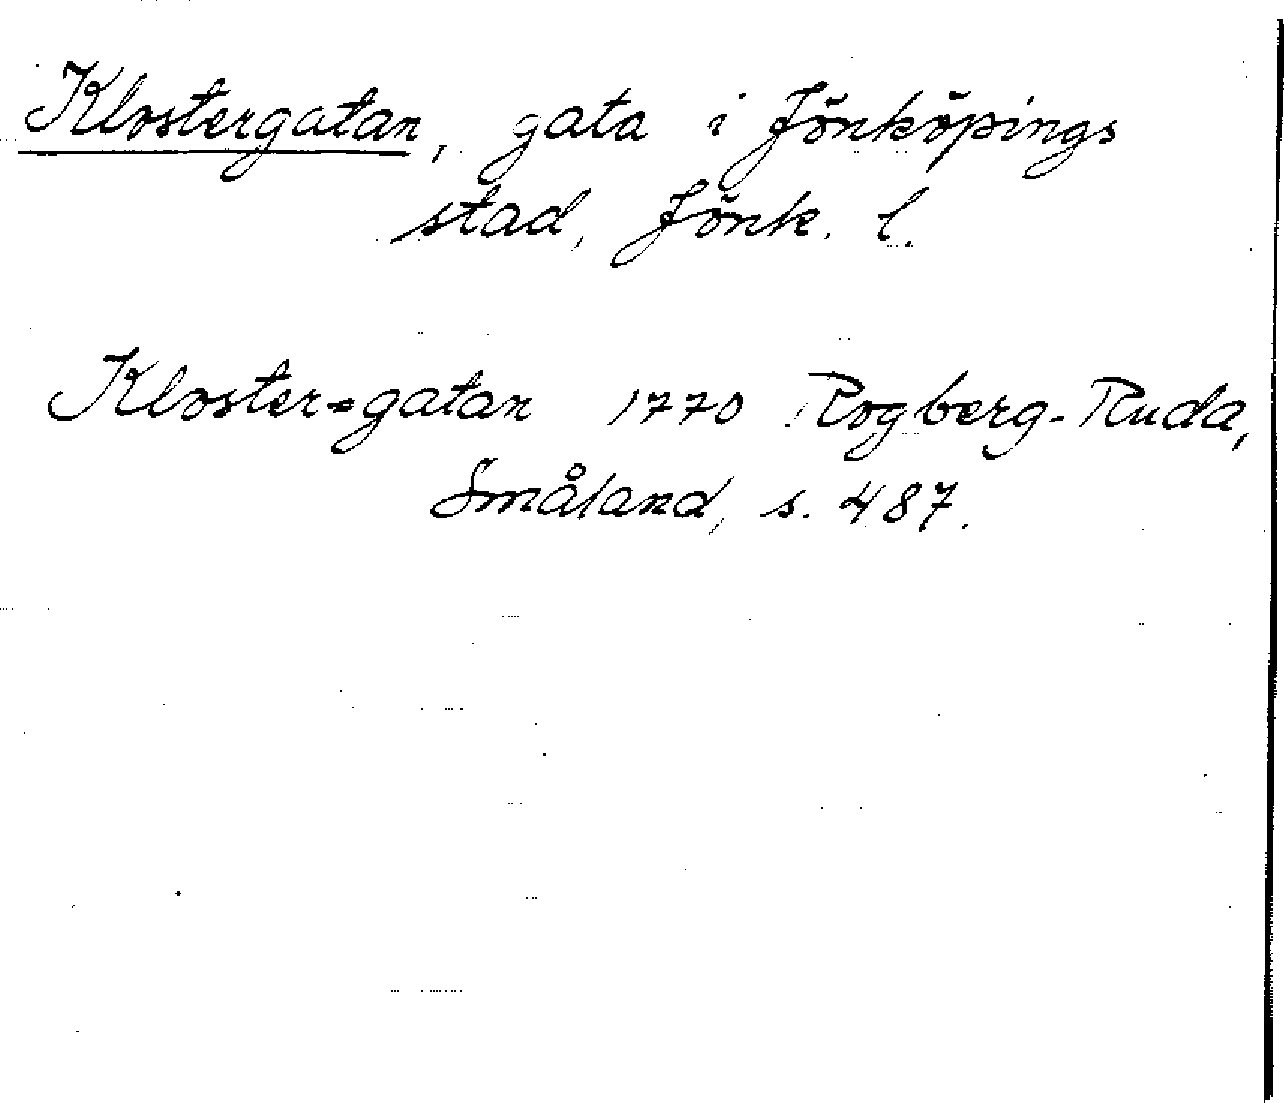 Klostergatan, gata i Jönköpings
stad, Jönk. l.
Kloster=gatan 1770 Rogberg-Ruda,
Småland, s. 487.